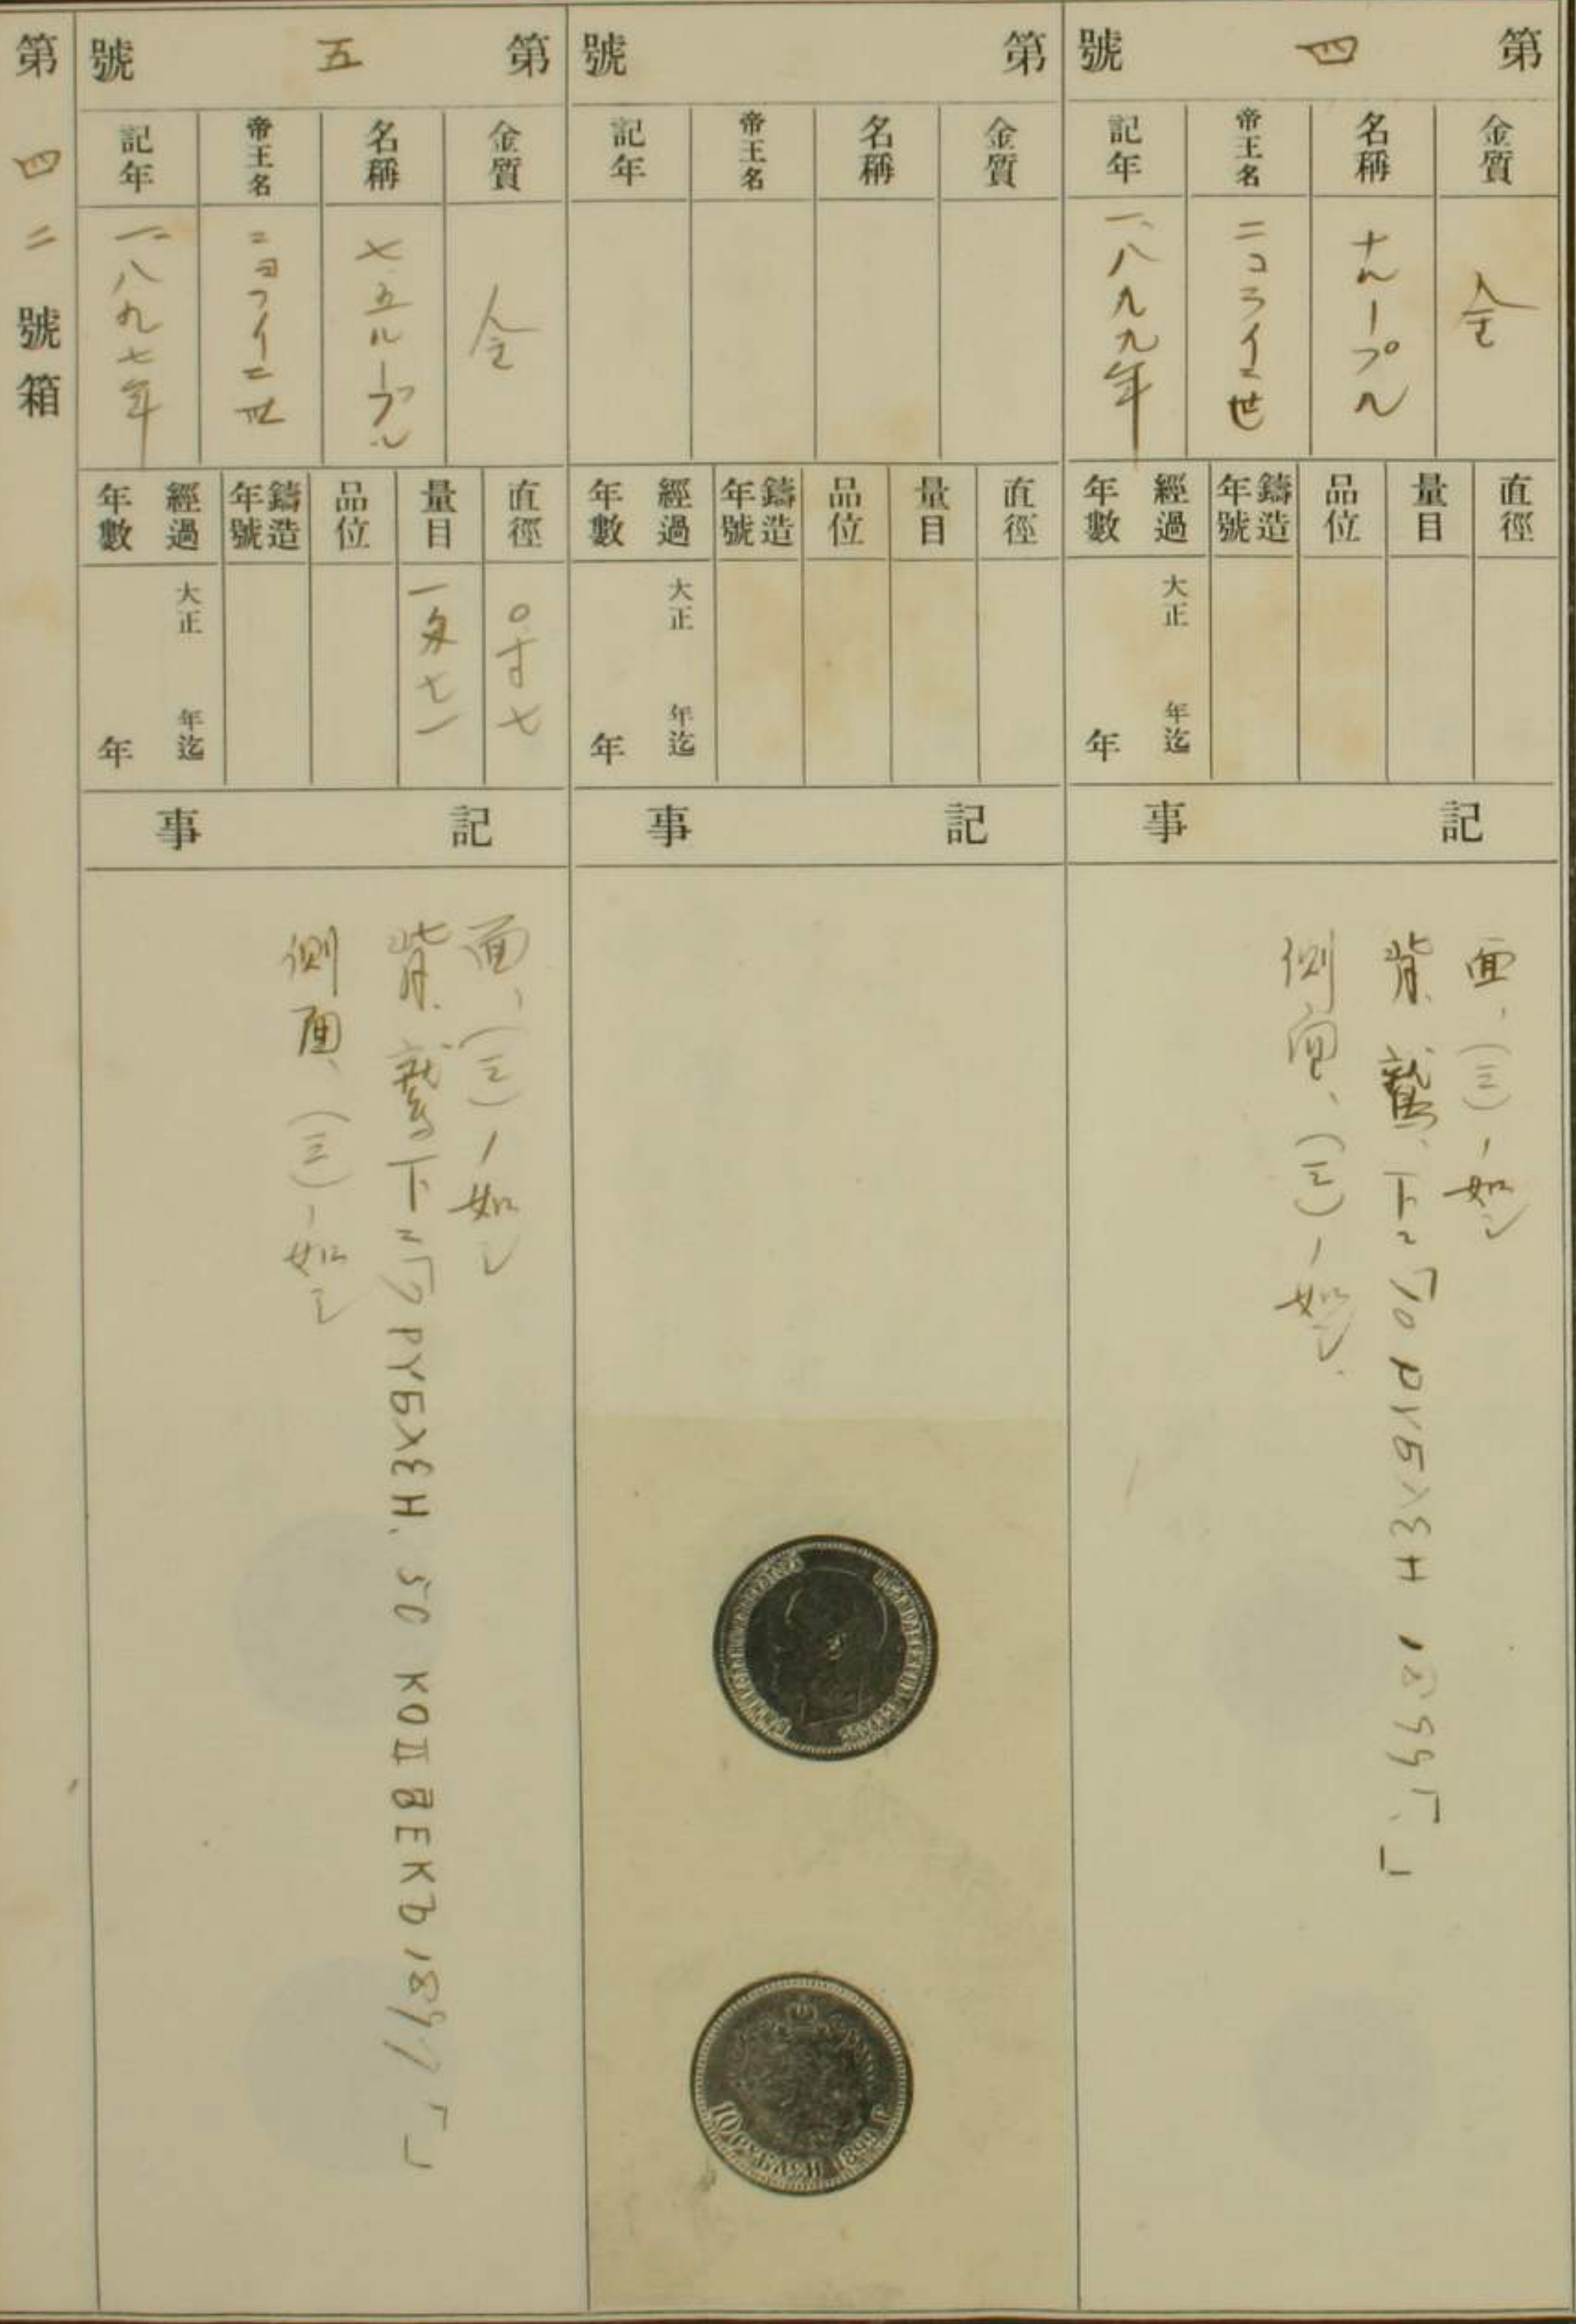 第四號
金質
金
名稱
十ルーブル
帝王名
ニコライ二世
記年
一八九九年
直徑
量目
品位
鑄造年號
經過年數
大正 年迄
年
記事
面、(三)ノ如シ
背、鷲、下ニ「10 РУБЛЕЙ 1899 Г」
側面、(三)ノ如シ
第 號
金質
名稱
帝王名
記年
直徑
量目
品位
鑄造年號
經過年數
大正 年迄
年
記事
10 РУБЛЕЙ 1899 Г
第五號
金質
金
名稱
七、五ルーブル
帝王名
ニコライ二世
記年
一八九七年
直徑
〇寸七
量目
一匁七一
品位
鑄造年號
經過年數
大正 年迄
年
記事
面、(三)ノ如シ
背、鷲、下ニ「7 РУБЛЕЙ 50 КОПѢЕКЪ 1897 Г」
側面、(三)ノ如シ
第四二號箱